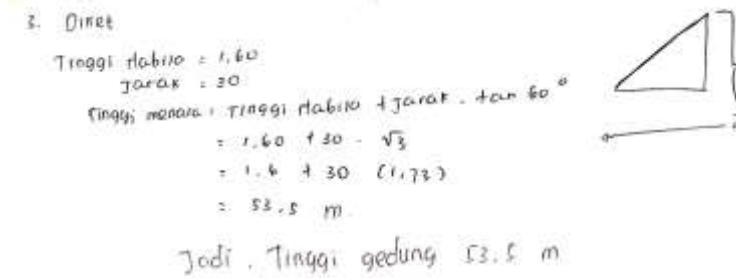 3. Diket
Tinggi Habibo = 1,60
Jarak = 30
Tinggi menara = Tinggi Habibo + Jarak . tan 60°
= 1,60 + 30 . √3
= 1.6 + 30 (1,73)
= 53.5 m
Jadi. Tinggi gedung 53.5 m